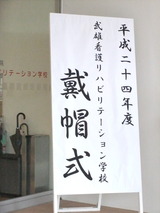 平成二十四年度
武雄看護リハビリテーション学校
戴帽式
リテーション学校